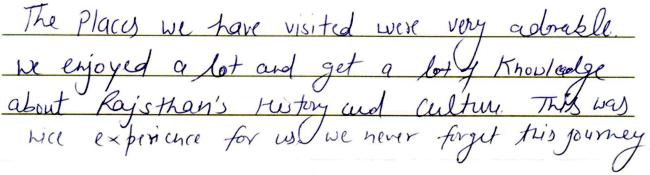 The Places we have visited were very adorable.
we enjoyed a lot and get a lot of Knowledge
about Rajsthan's History and culture. This was
nice experience for us. we never forget this journey